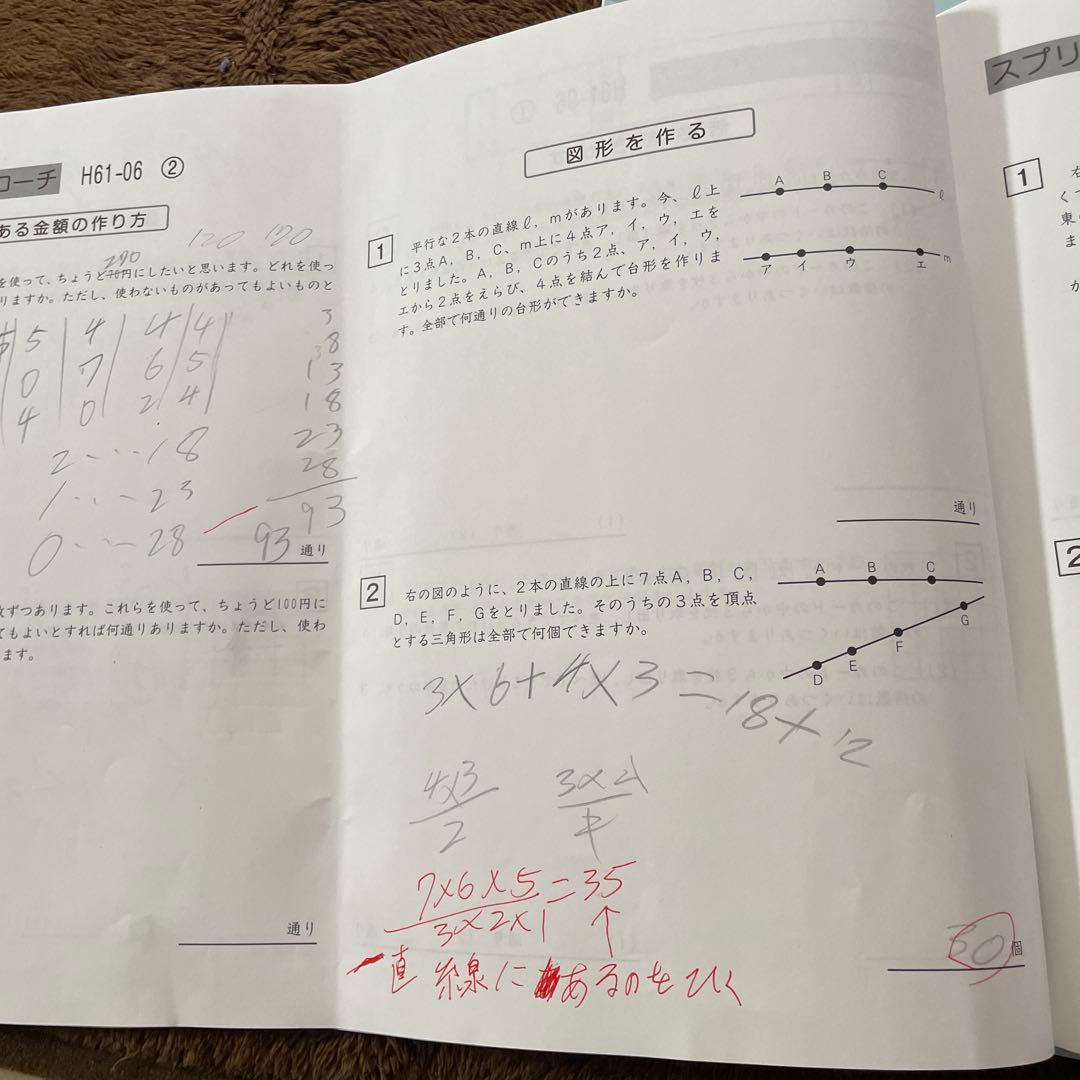 コーチ H61-06 ②
ある金額の作り方
120 120
290
を使って、ちょうど70円にしたいと思います。どれを使っ
りますか。ただし、使わないものがあってもよいものと
5 4 4 4
0 7 6 5
4 0 2 4
2・・・18
1・・・23
0・・・28
3
8
13
18
23
28
93
93 通り
枚ずつあります。これらを使って、ちょうど100円に
てもよいとすれば何通りありますか。ただし、使わ
ます。
通り
図形を作る
1 平行な2本の直線ℓ，mがあります。今、ℓ上
に3点A，B，C、m上に4点ア，イ，ウ，エを
とりました。A，B，Cのうち2点、ア，イ，ウ，
エから2点をえらび、4点を結んで台形を作りま
す。全部で何通りの台形ができますか。
A B C ℓ
ア イ ウ エ m
通り
2 右の図のように、2本の直線の上に7点A，B，C，
D，E，F，Gをとりました。そのうちの3点を頂点
とする三角形は全部で何個できますか。
A B C
D E F G
3×6+4×3=18×12
4×3/2 3×2/
7×6×5/3×2×1=35
↑
一直線にあるのをひく
30個
スプリ
1
2